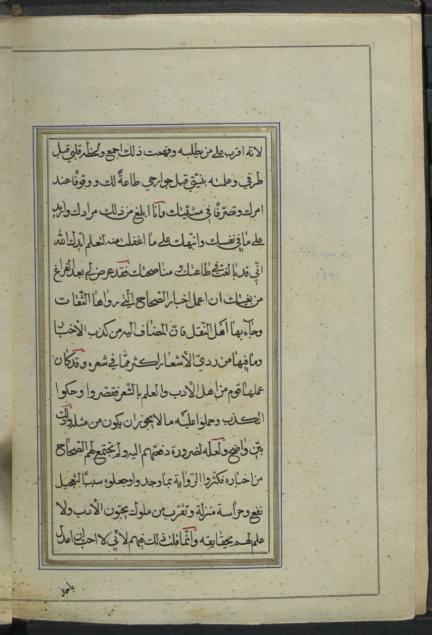 لانه اقرب على من يطلبه وفهمت ذلك اجمع ولحظه قلبي قبل
طرفي وعلمته بنيتي قبل جوارحي طاعةً لك ووقوفًا عند
امرك وتصرفًا في مشيئتك وأنا ابلغ من ذلك مرادك وازيد
على ما في نفسك وانبهك على ما اغفلت عنه لتعلم ايدك الله
اني قد بالغت في طاعتك مناصحتك فقد عرض لي بعد الفراغ
من ان اعمل اخبار الصحاح التي رواها الثقات
وجاء بها اهل النقل فان المضاف اليه من كذب الاخبار
وما فيها من ردي الأشعار اكثر مما في شعره وقد كان
عملها قوم من اهل الادب والعلم بالشعر فقصروا وحكوا
الكذب وحملوا عليه ما لا يجوز ان يكون من مثله وذلك
بيّن واضح ولعله لضرورة دفعتهم اليه ولم تجتمع لهم الصحاح
من اخباره فكثروا الرواية بما وجدوا وجعلوه سببًا
نفع وحراسة منزلة وتقرب من ملوك يحبون الأدب ولا
علم لهم بحقايقه وانما قلت ذلك فيهم لاني لا احب ان اعدل